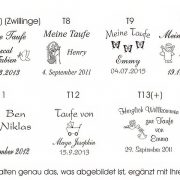 (Zwillinge)
T8
T9
Meine Taufe
Meine Taufe
Henry
Emmy
.2013
4. September 2011
04.07.2015
T12
T13(+)
Ben
Niklas
Taufe von
Herzlich Willkommen
zur Taufe von
Emma
2012
30.9.2013
29. September 2011
alten genau das, was abgebildet ist, ergänzt mit Ihre